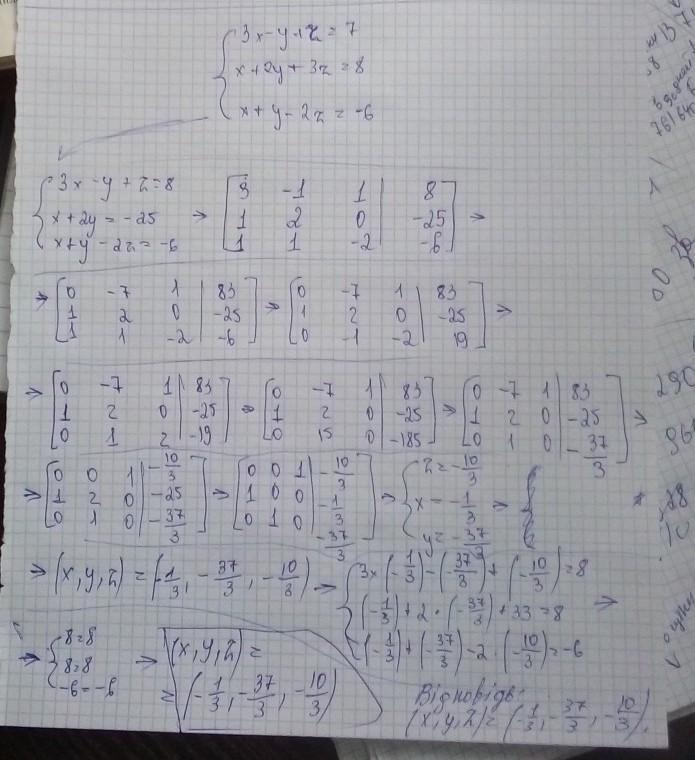 3x-y+z=7
x+2y+3z=8
x+y-2z=-6
3x-y+z=8
x+2y=-25
x+y-2z=-6
→ [3 -1 1 | 8
1 2 0 | -25
1 1 -2 | -6] →
→ [0 -7 1 | 83
1 2 0 | -25
1 1 -2 | -6] → [0 -7 1 | 83
1 2 0 | -25
0 -1 -2 | 19] →
→ [0 -7 1 | 83
1 2 0 | -25
0 1 2 | -19] → [0 -7 1 | 83
1 2 0 | -25
0 15 0 | -185] → [0 -7 1 | 83
1 2 0 | -25
0 1 0 | -37/3] →
→ [0 0 1 | -10/3
1 2 0 | -25
0 1 0 | -37/3] → [0 0 1 | -10/3
1 0 0 | -1/3
0 1 0 | -37/3] → {z=-10/3
x=-1/3
y=-37/3 →
→ (x,y,z) = (-1/3, -37/3, -10/3) → {3×(-1/3)-(-37/3)+(-10/3)=8
(-1/3)+2·(-37/3)+33=8
(-1/3)+(-37/3)-2·(-10/3)=-6 →
→ {8=8
8=8
-6=-6
→ (x,y,z)=
=(-1/3, -37/3, -10/3)
Відповідь:
(x,y,z)=(-1/3, -37/3, -10/3).